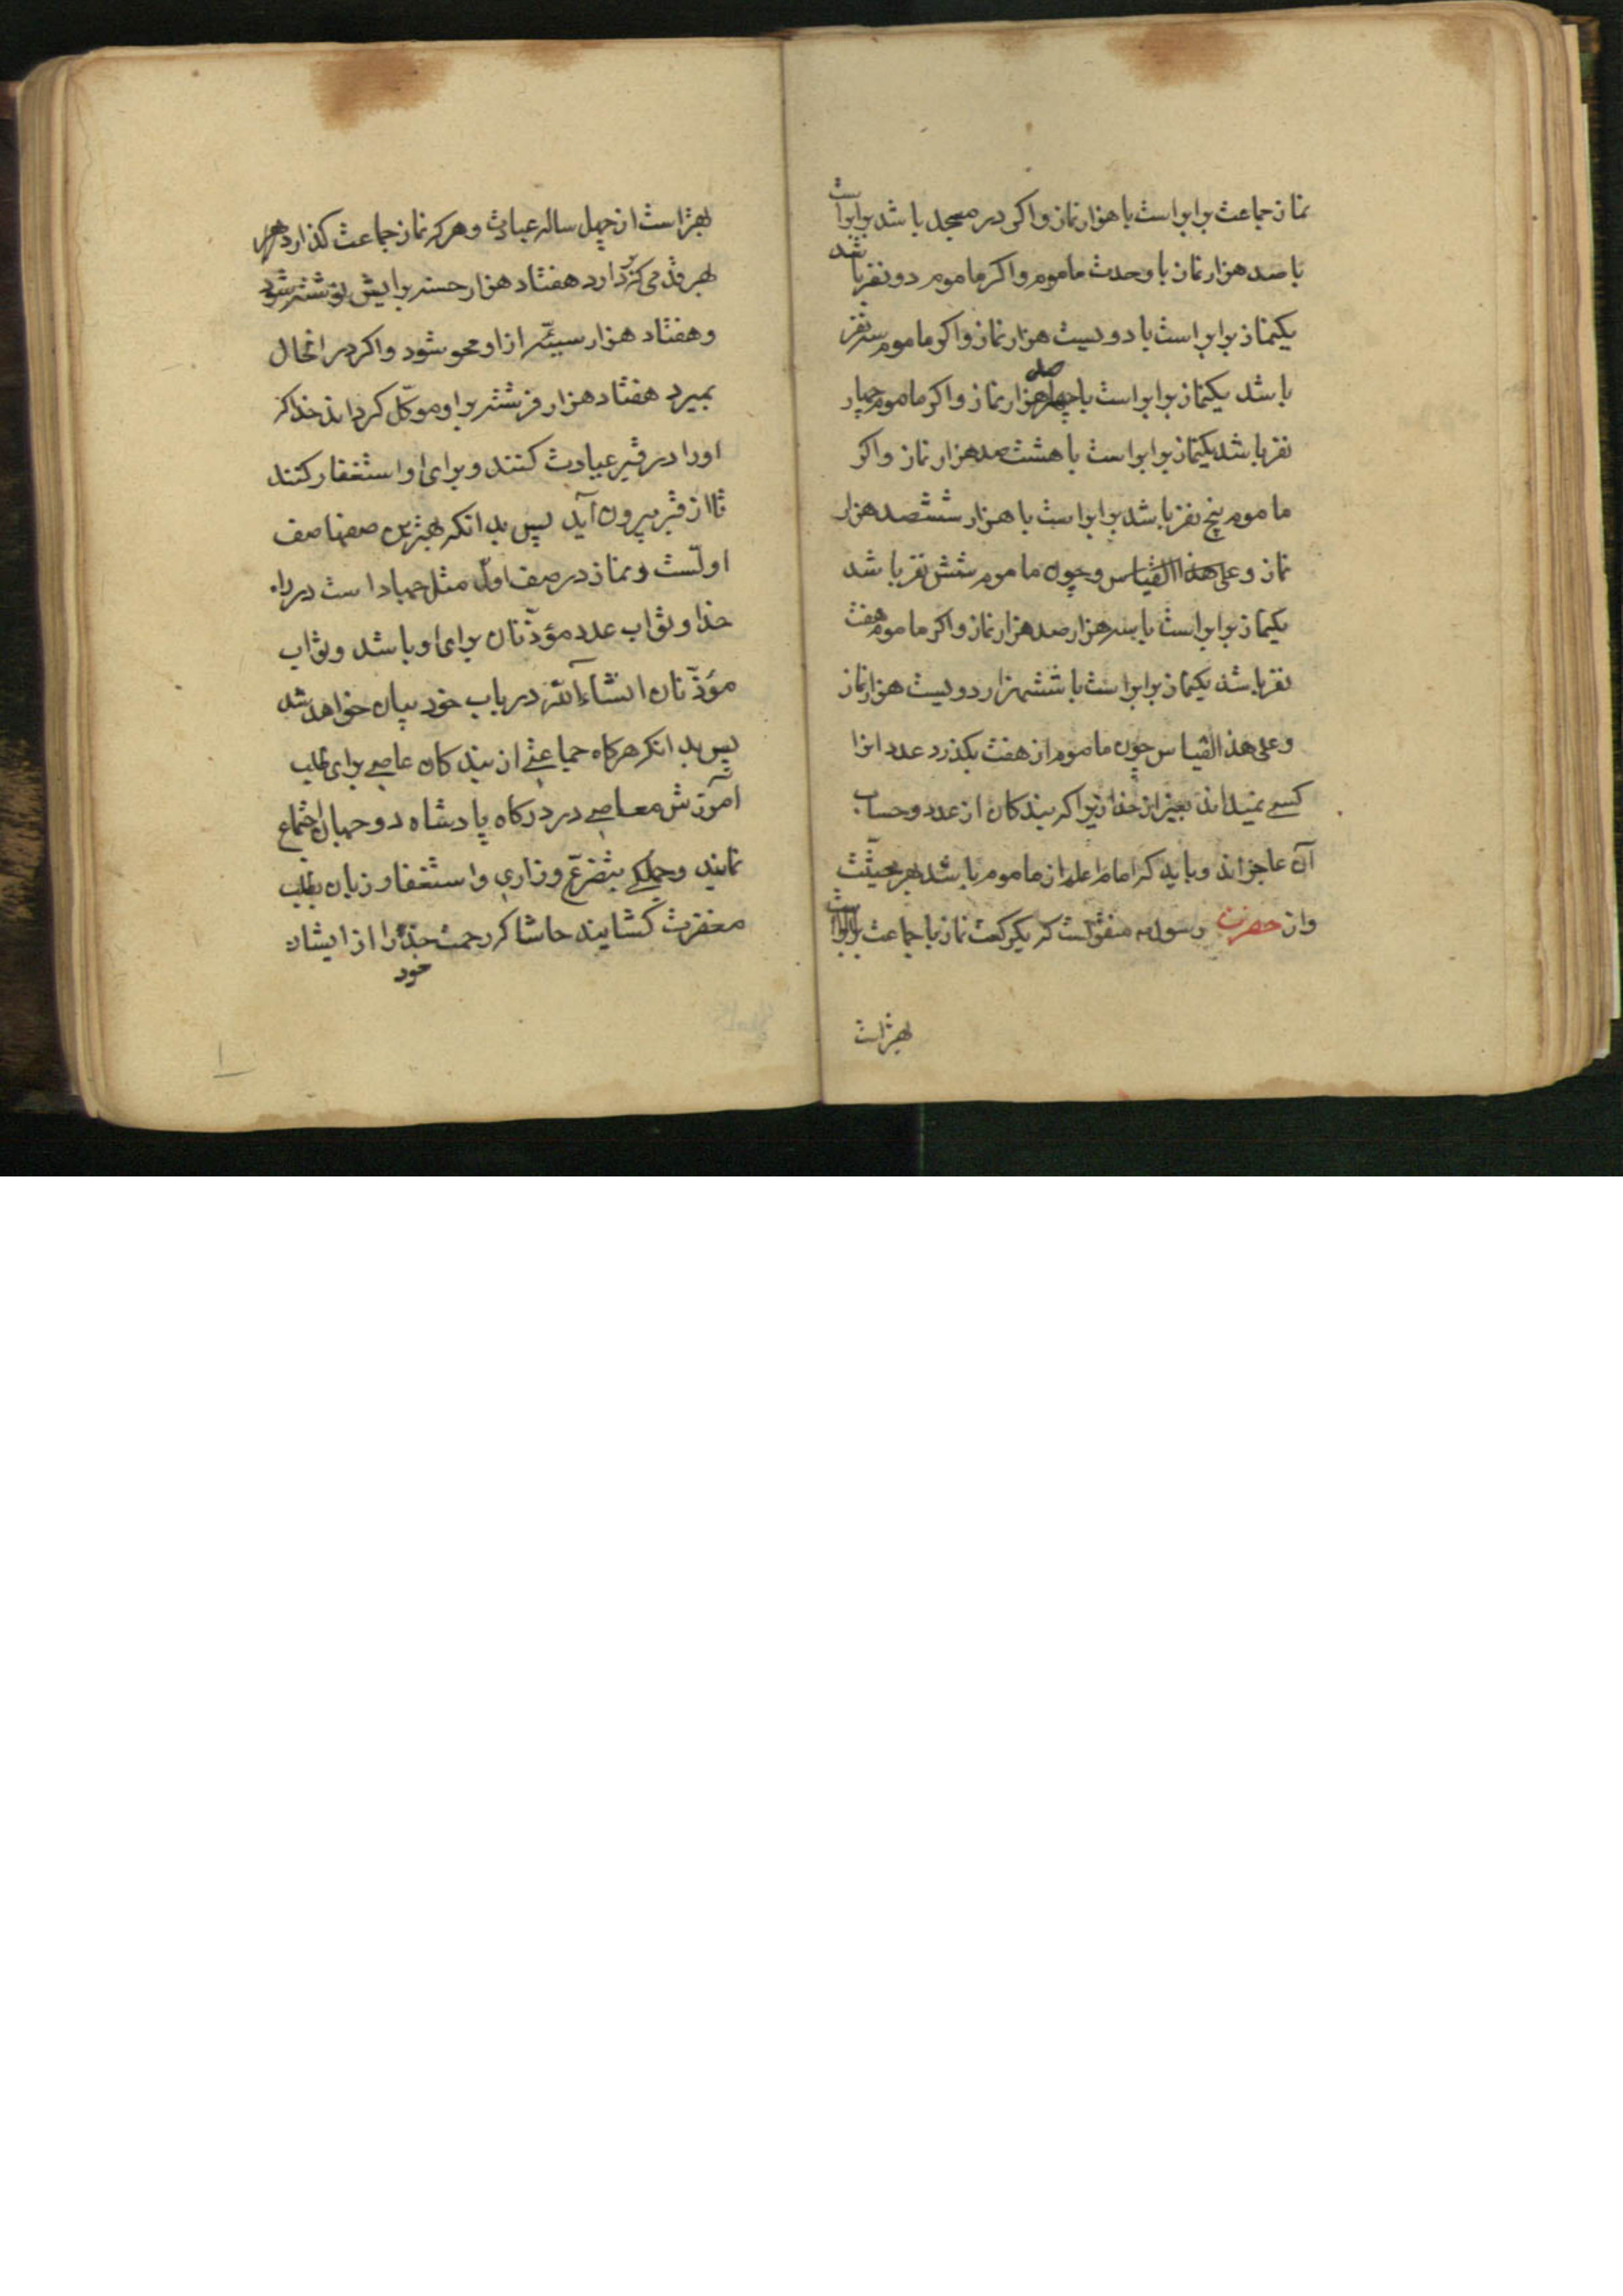 نماز جماعت برابراست با هزار نماز واگر در مسجد باشد برابراست
با صد هزار نماز با وحدت ماموم واگر ماموم دو نفر باشد
یکنماز برابراست با دویست هزار نماز واگر ماموم سه نفر
باشد یکنماز برابراست با چهار صد هزار نماز واگر ماموم چهار
نفر باشد یکنماز برابراست با هشت صد هزار نماز واگر
ماموم پنج نفر باشد برابراست با هزار ششصد هزار
نماز وعلی هذا القیاس وچون ماموم شش نفر باشد
یکنماز برابراست با سه هزار صد هزار نماز واگر ماموم هفت
نفر باشد یکنماز برابراست با ششهزار دویست هزار نماز
وعلی هذا القیاس چون ماموم از هفت بگذرد عدد انرا
کسی نمیداند بغیر از خدا زیرا که بندکان از عدد وحساب
آن عاجزاند وباید که امام اعلم از ماموم باشد بهر حیثیت
واز حضرت رسول منقولست که یکرکعت نماز با جماعت
بهتراست
بهتراست از چهل ساله عبادت وهرکه نماز جماعت کذارد
بهر قدمی که بردارد هفتاد هزار حسنه برایش نوشته شود
وهفتاد هزار سیئه از او محو شود واگر در انحال
بمیرد هفتاد هزار فرشته براو موکّل کرداند خدا که
اورا در قبر عیادت کنند وبرای او استغفار کنند
تا از قبر بیرون آید پس بدانکه بهترین صفها صف
اولست ونماز در صف اوّل مثل جهاد است در راه
خدا وثواب عدد مؤذّنان برای او باشد وثواب
مؤذّنان انشاءالله در باب خود بیان خواهد شد
پس بدانکه هرکاه جماعتی از بندکان عاصی برای طلب
آمرزش معاصی در درکاه پادشاه دو جهان اجتماع
نمایند وجملکی بتضرّع وزاری واستغفار زبان بطلب
مغفرت گشایند حاشا که رحمت خدا را از ایشان
خود